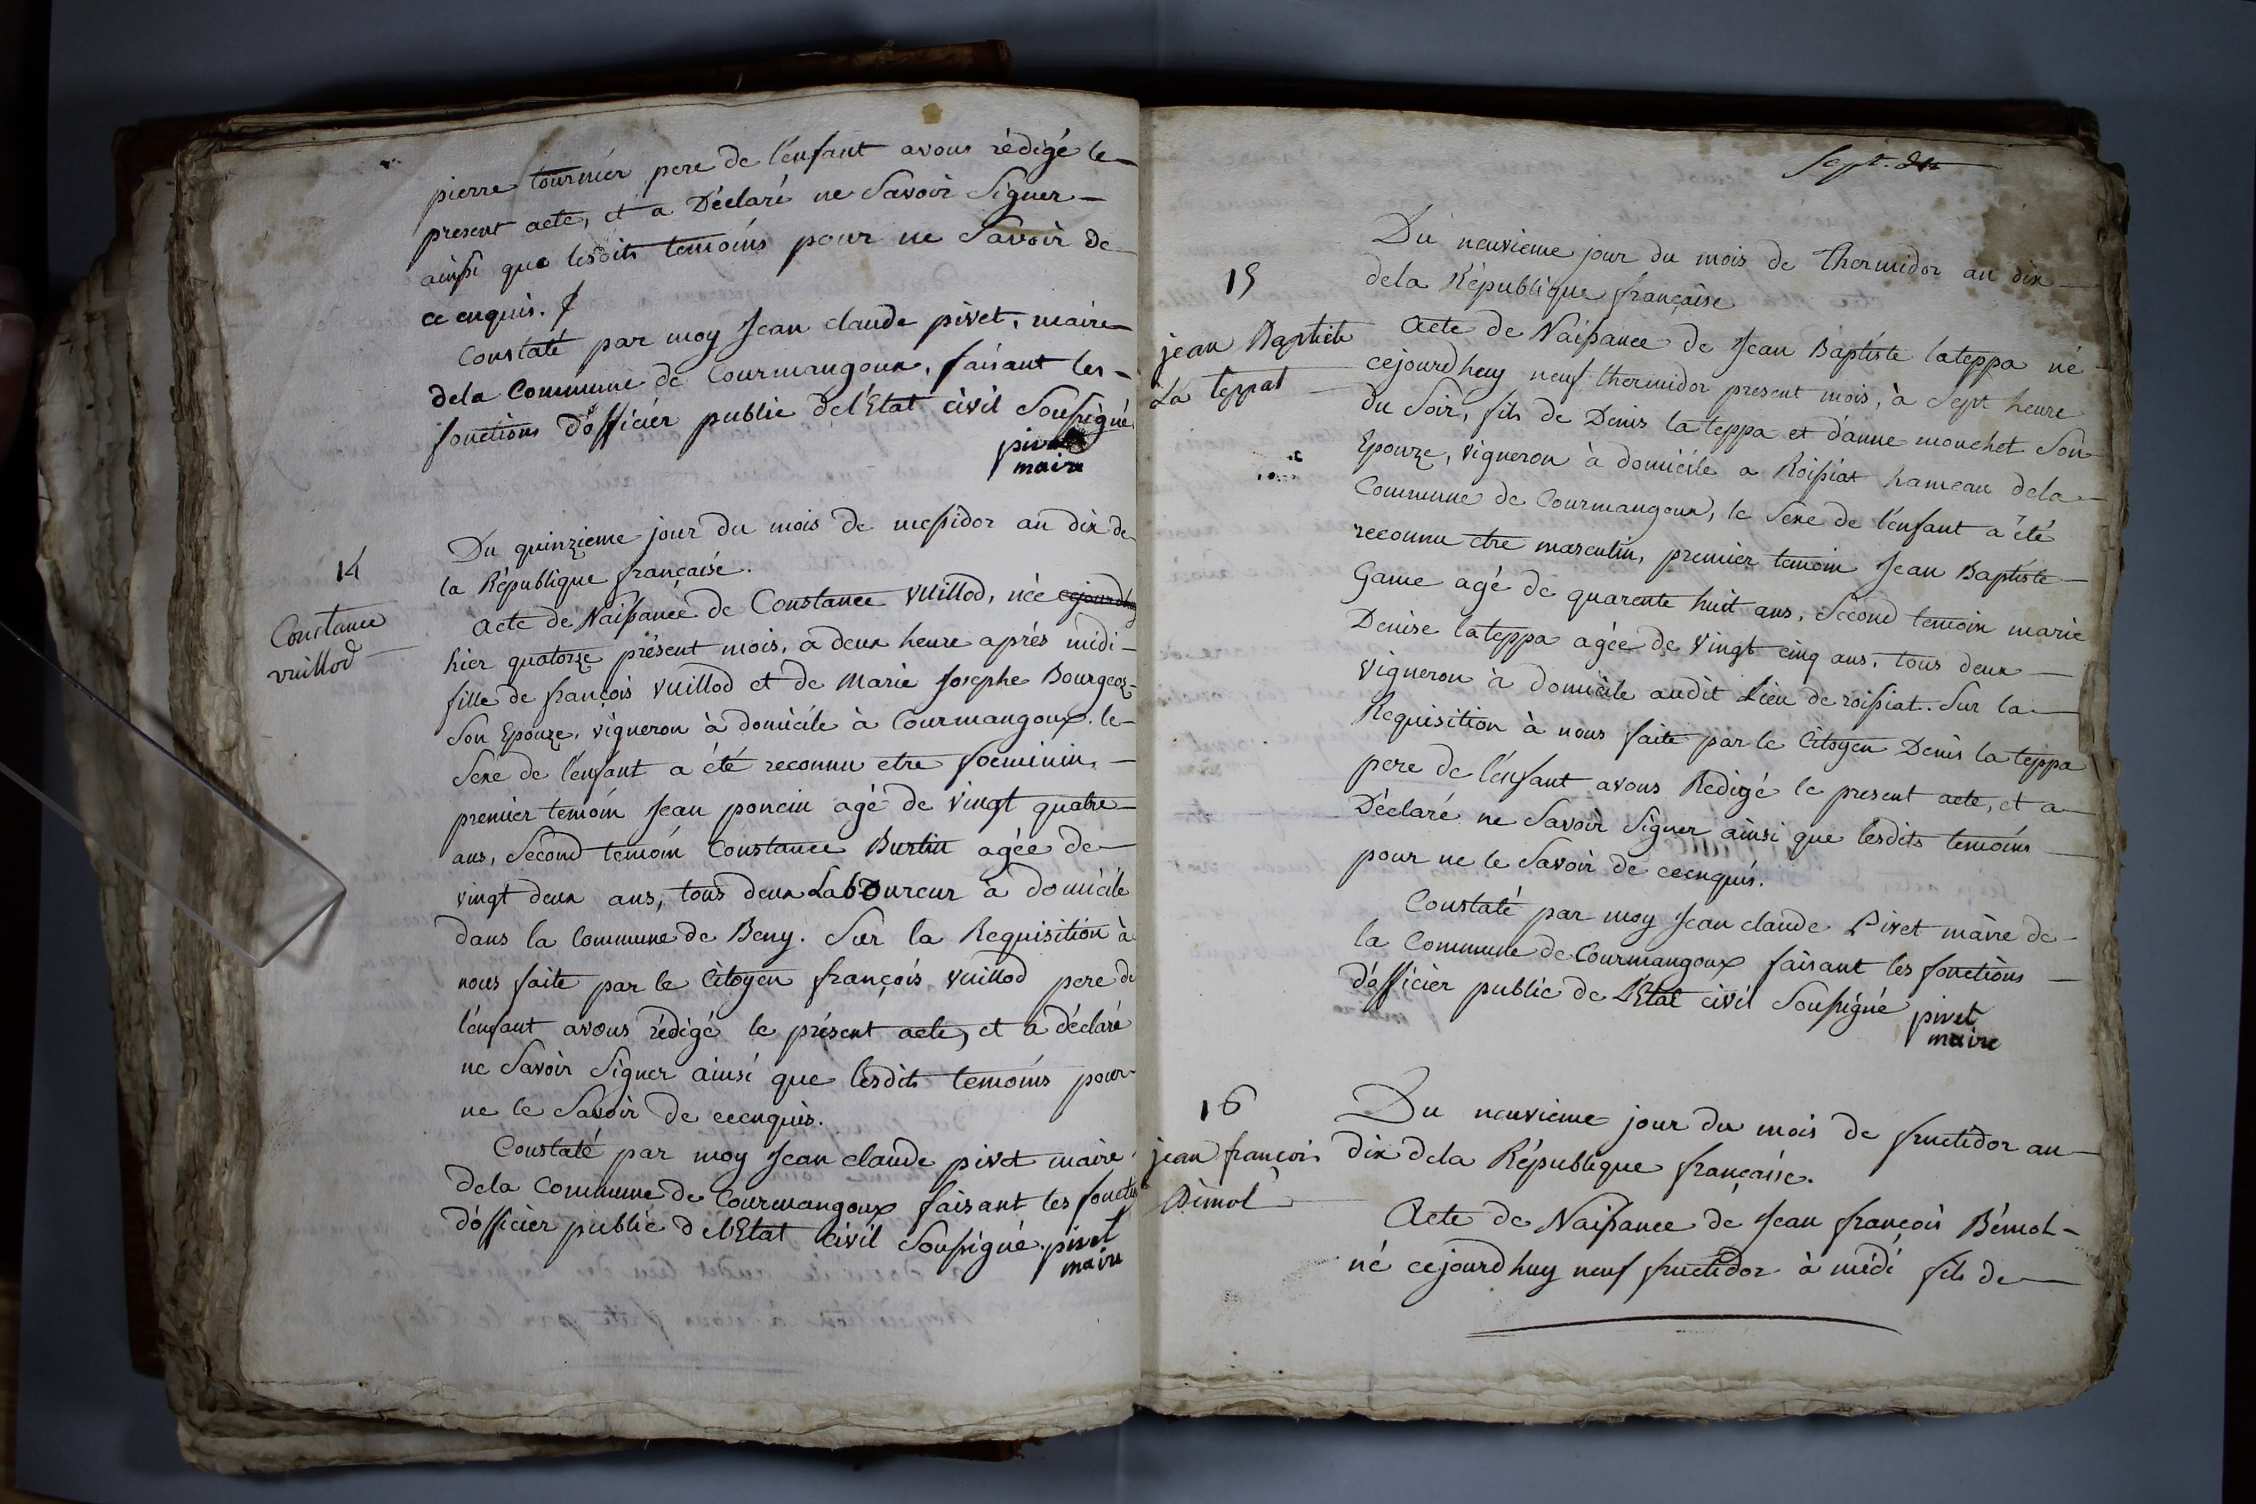 pierre tournier pere de l'enfant avons rédigé le
present acte, et a Déclaré ne Savoir Signer
ainsi que lesdits temoins pour ne Savoir de
ce enquis.
Constaté par moy Jean claude pivet, maire
dela Commune de Courmangoux, faisant les
fonctions d'officier public de l'Etat civil Soussigné
pivet
maire
14
Constance
vuillod
Du quinzieme jour du mois de messidor an dix de
la République française.
Acte de Naissance de Constance Vuillod, née cejourdhuy
hier quatorze présent mois, a deux heure après midi
fille de françois Vuillod et de Marie Josephe Bourgeoz
Son Epouze, vigneron à domicile à Courmangoux. le
Sexe de l'enfant a été reconnu etre foeminin,
premier temoin Jean poncin agé de vingt quatre
ans, Second temoin Constance Burtin agée de
vingt deux ans, tous deux Laboureur a domicile
dans la Commune de Beny. Sur la Requisition à
nous faite par le Citoyen françois vuillod pere de
l'enfant avons rédigé le présent acte, et a déclaré
ne Savoir Signer ainsi que lesdits temoins pour
ne le Savoir de ce enquis.
Constaté par moy Jean claude pivet maire
dela Commune de Courmangoux faisant les fonctions
d'officier public de l'Etat civil Soussigné. pivet
maire
Sept.
15
jean Baptiste
La teppat
Du neuvieme jour du mois de thermidor an dix
dela République française
Acte de Naissance de Jean Baptiste lateppa né
cejourdhuy neuf thermidor present mois, à Sept heure
du Soir, fils de Denis lateppa et d'anne monchet Son
Epouze, vigneron à domicile a Roissiat hameau dela
Commune de Courmangoux, le Sexe de l'enfant a été
reconnu etre masculin, premier temoin Jean Baptiste
Game agé de quarente huit ans, Second temoin marie
Denise lateppa agée de vingt cinq ans, tous deux
vigneron à domicile audit Lieu de roissiat. Sur la
Requisition à nous faite par le Citoyen Denis la teppa
pere de l'enfant avons Redigé le present acte, et a
Déclaré ne Savoir Signer ainsi que lesdits temoins
pour ne le Savoir de ce enquis.
Constaté par moy Jean claude Pivet maire de
la Commune de Courmangoux faisant les fonctions
d'officier public de L'Etat civil Soussigné pivet
maire
16
jean francois
Bémol
Du neuvieme jour du mois de fructidor an
dix dela République française.
Acte de Naissance de Jean françois Bémol
né cejourdhuy neuf fructidor à midi fils de